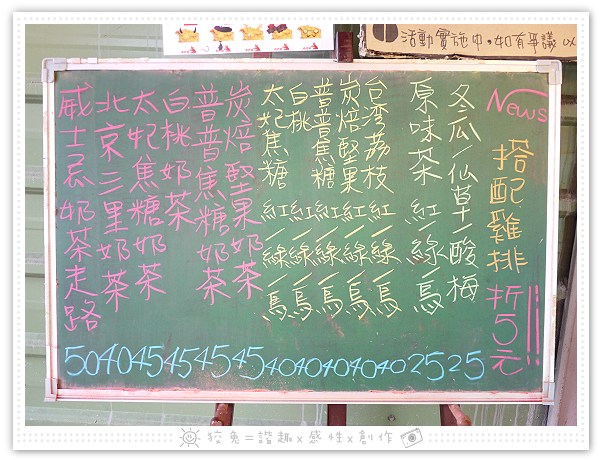 活動實施中,如有爭議 以
News
搭配雞排折5元!!
冬瓜/仙草/酸梅 25
原味茶 紅/綠/烏 25
台灣荔枝 紅/綠/烏 40
炭焙堅果 紅/綠/烏 40
普普焦糖 紅/綠/烏 40
白桃 紅/綠/烏 40
太妃焦糖 紅/綠/烏 40
炭焙堅果奶茶 45
普普焦糖奶茶 45
白桃奶茶 45
太妃焦糖奶茶 45
北京三里奶茶 40
威士忌奶茶走路 50
狡兔=諧趣x感性x創作